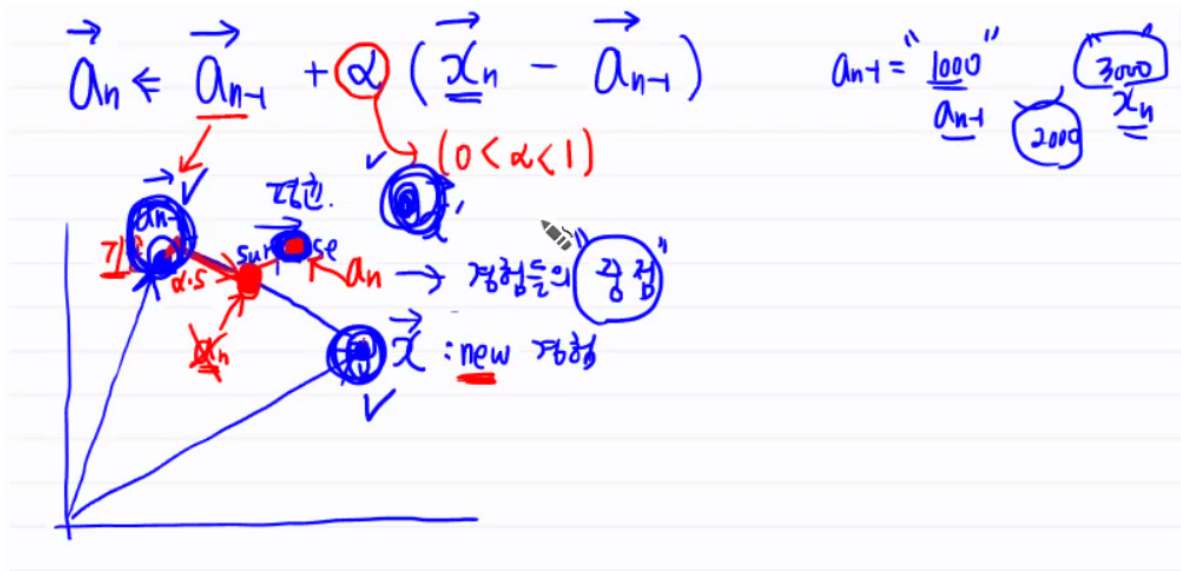 aₙ ⇐ aₙ₋₁ + α (xₙ − aₙ₋₁)
aₙ₋₁ = "1000" "3000"
aₙ₋₁ 2000 xₙ
(0 < α < 1)
평균.
aₙ₋
surprise
α·s
aₙ → 경험들의 "공 점"
aₙ
x : new 경험